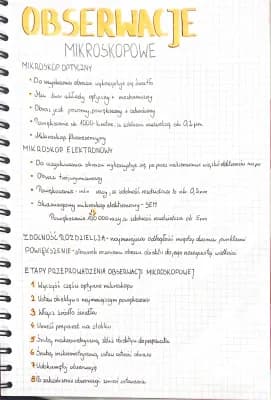 OBSERWACJE
MIKROSKOPOWE
MIKROSKOP OPTYCZNY
• Do uzyskania obrazu wykorzystuje się światło
• Ma dwa układy optyczny + mechaniczny
• Obraz jest pozorny, powiększony + odwrócony
• Powiększenie ok 1000-krotne, a zdolność rozdzielcza ok 0,2 µm
• Mikroskop fluorescencyjny
MIKROSKOP ELEKTRONOWY
• Do uzyskiwania obrazu wykorzystuje się wiązki elektronów
• Obraz
• Powiększenie - mln razy, a zdolność rozdzielcza to ok 0,1 nm
• Skaningowy mikroskop elektronowy - SEM
Powiększenie 100 000 razy a zdolność rozdzielcza ok 5 nm
ZDOLNOŚĆ ROZDZIELCZA - najmniejsza odległość między dwoma punktami
POWIĘKSZENIE - stosunek rozmiaru obrazu obiektu do jego rzeczywistej wielkości
ETAPY PRZEPROWADZENIA OBSERWACJI MIKROSKOPOWEJ
1 Wyczyść części optyczne mikroskopu
2 Ustaw obiektyw o najmniejszym powiększeniu
3 Włącz źródło światła
4 Umieść preparat na stoliku
5 Śrubą makrometryczną zbliż obiektyw do preparatu
6 Śrubą mikrometryczną ustaw ostrość obrazu
7 Udokumentuj obserwację
8 Po zakończeniu obserwacji